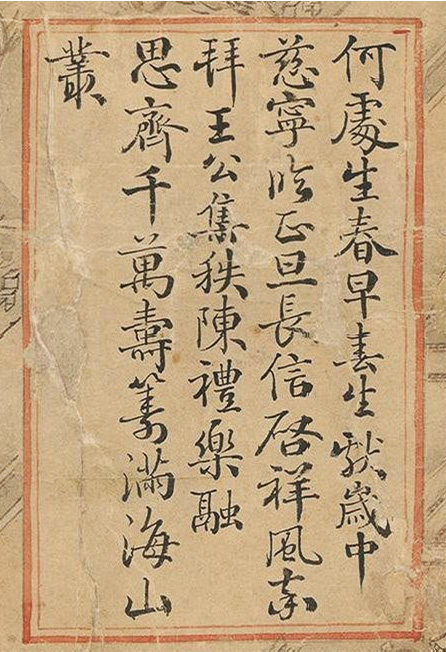 何處生春早春生獻歲中
慈寧临正旦長信启祥風
拜王公集秩陳禮樂融
思齊千萬壽籌滿海山
叢